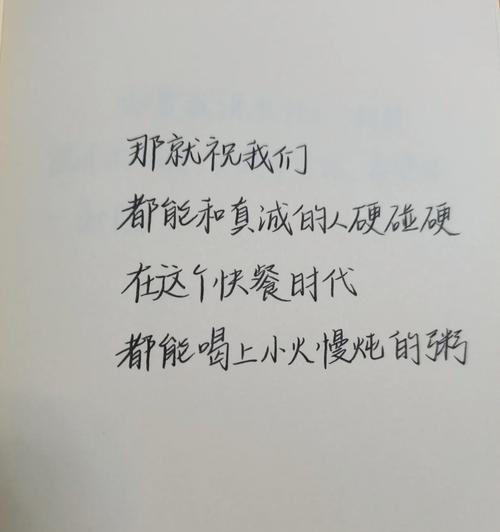 那就祝我们
都能和真诚的人硬碰硬
在这个快餐时代
都能喝上小火慢炖的粥